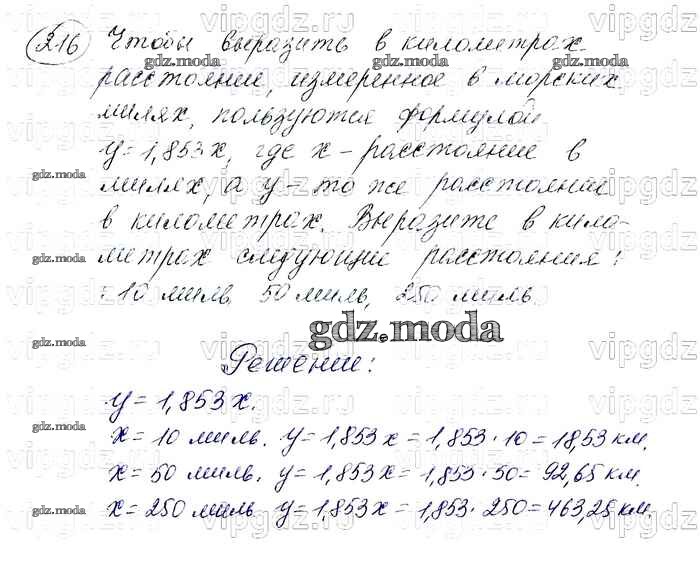 216 Чтобы выразить в километрах
расстояние, измеренное в морских
милях, пользуются формулой
y = 1,853x, где x – расстояние в
милях, а y – то же расстояние
в километрах. Выразите в кило-
метрах следующие расстояния:
: 10 миль, 50 миль, 250 миль.
gdz.moda
Решение:
y = 1,853x.
x = 10 миль. y = 1,853x = 1,853 · 10 = 18,53 км.
x = 50 миль. y = 1,853x = 1,853 · 50 = 92,65 км.
x = 250 миль y = 1,853x = 1,853 · 250 = 463,25 км.